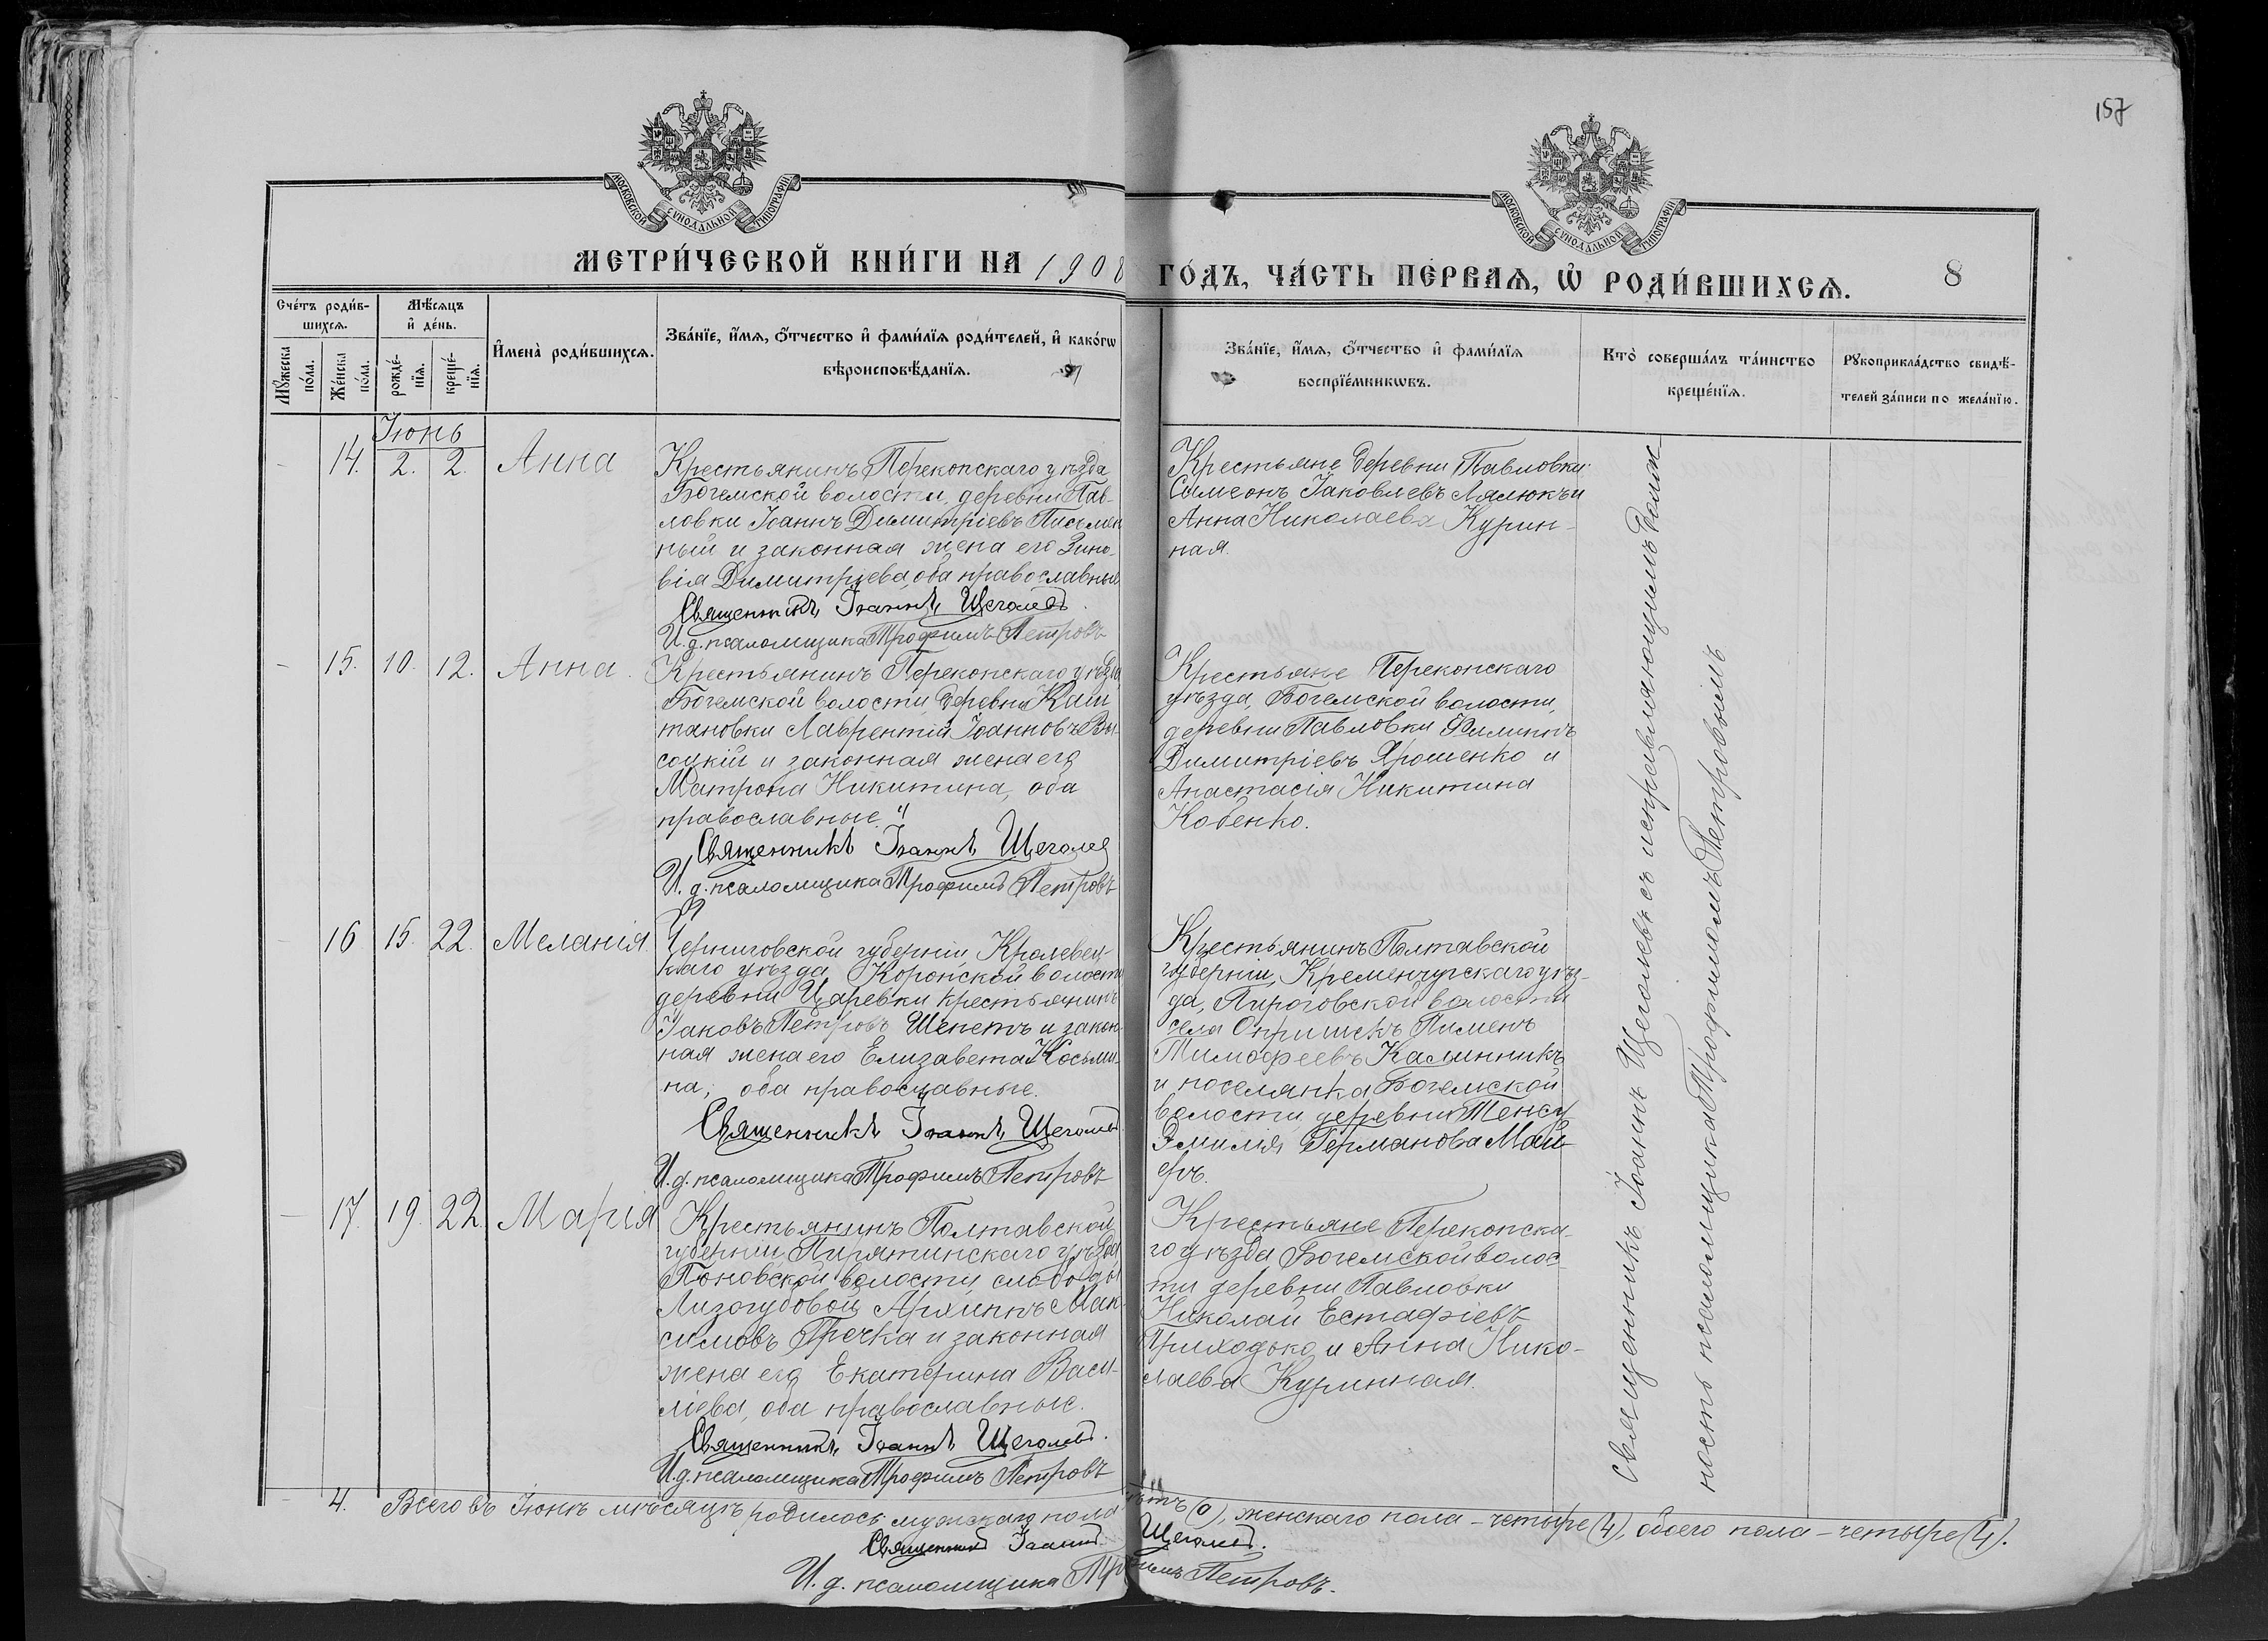 157
МОСКОВСКОЙ СУНОДАЛЬНОЙ ТИПОГРАФІИ
МОСКОВСКОЙ СУНОДАЛЬНОЙ ТИПОГРАФІИ
МЕТРИ́ЧЕСКОЙ КНИ́ГИ НА 1908
ГО́ДЪ, ЧА́СТЬ ПЕ́РВАѦ, Ѡ҆ РОДИ́ВШИХСѦ.
8
Сче́тъ роди́в-
шихсѧ.
Мѣ́сѧцъ
и҆ де́нь.
И҆мена̀ роди́вшихсѧ.
Зва́нїе, и҆́мѧ, ѻ҆́тчество и҆ фами́лїѧ роди́телей, и҆ како́гѡ
вѣроисповѣ́данїѧ.
Мꙋ́жеска
по́ла.
Же́нска
по́ла.
рожде́-
нїѧ.
креще́-
нїѧ.
Зва́нїе, и҆́мѧ, ѻ҆́тчество и҆ фами́лїѧ
воспрїе́мникѡвъ.
Кто̀ соверша́лъ та́инство
креще́нїѧ.
Рꙋкоприкла́дство свидѣ́-
телей за́писи по жела́нїю.
Іюнь
- 14. 2. 2. Анна
Крестьянинъ Перекопскаго уѣзда
Богемской волости, деревни Пав-
ловки Іоаннъ Димитріевъ Письмен
ный и законная жена его Зино-
вія Димитріева, оба православные
Священникъ Іоаннъ Щеголевъ.
И. д. псаломщика Трофимъ Петровъ
Крестьяне деревни Павловки
Симеонъ Іаковлевъ Лялюкъ и
Анна Николаева Курин-
ная.
- 15. 10. 12. Анна.
Крестьянинъ Перекопскаго уѣзда
Богемской волости, деревни Каш
тановки Лаврентій Іоанновъ Вы-
соцкій и законная жена его
Матрона Никитина, оба
православные.
Священникъ Іоаннъ Щеголев
И. д. псаломщика Трофимъ Петровъ
Крестьяне Перекопскаго
уѣзда, Богемской волости,
деревни Павловки Филиппъ
Димитріевъ Ярошенко и
Анастасія Никитина
Кобенко.
- 16 15. 22. Меланія.
Черниговской губерніи Кролевец-
каго уѣзда, Коропской волости
деревни Царевки крестьянинъ
Іаковъ Петровъ Шепетъ и закон-
ная жена его Елизавета Косьми-
на, оба православные.
Священникъ Іоаннъ Щеголевъ
И. д. псаломщика Трофимъ Петровъ
Крестьянинъ Полтавской
губерніи, Кременчугскаго уѣз-
да, Пироговской волости
села Опришекъ Пименъ
Тимофеевъ Калинникъ
и поселянка Богемской
волости деревни Тенсу
Эмилія Германова Май-
еръ.
- 17. 19. 22. Марія
Крестьянинъ Полтавской
губерніи Пирятинскаго уѣзда
волости, слободы
Лизогубовой Мак-
симовъ Гречка и законная
жена его Екатерина Васи-
ліева, оба православные.
Священникъ Іоаннъ Щеголевъ.
И. д. псаломщика Трофимъ Петровъ
Крестьяне Перекопска-
го уѣзда Богемской волос-
ти деревни Павловки
Николай Естафіевъ
Приходько и Анна Нико-
лаева Куринная.
Священникъ Іоаннъ Щеголевъ съ исправляющимъ долж-
ность псаломщика Трофимомъ Петровымъ
4. Всего въ Іюнѣ мѣсяцѣ родилось мужскаго пола нѣтъ (0), женскаго пола - четыре (4), обоего пола - четыре (4).
Священникъ Іоаннъ Щеголевъ.
И. д. псаломщика Трофимъ Петровъ.